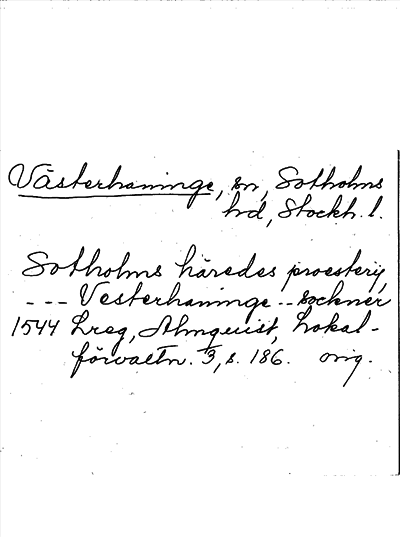 Västerhaninge, sn, Sotholms
hd, Stockh. l.
Sotholms häredes proesterij,
--- Vesterhaninge -- Sockner
1544 Lreg, Almquist, Lokal-
förvaltn. 3, s. 186. orig.